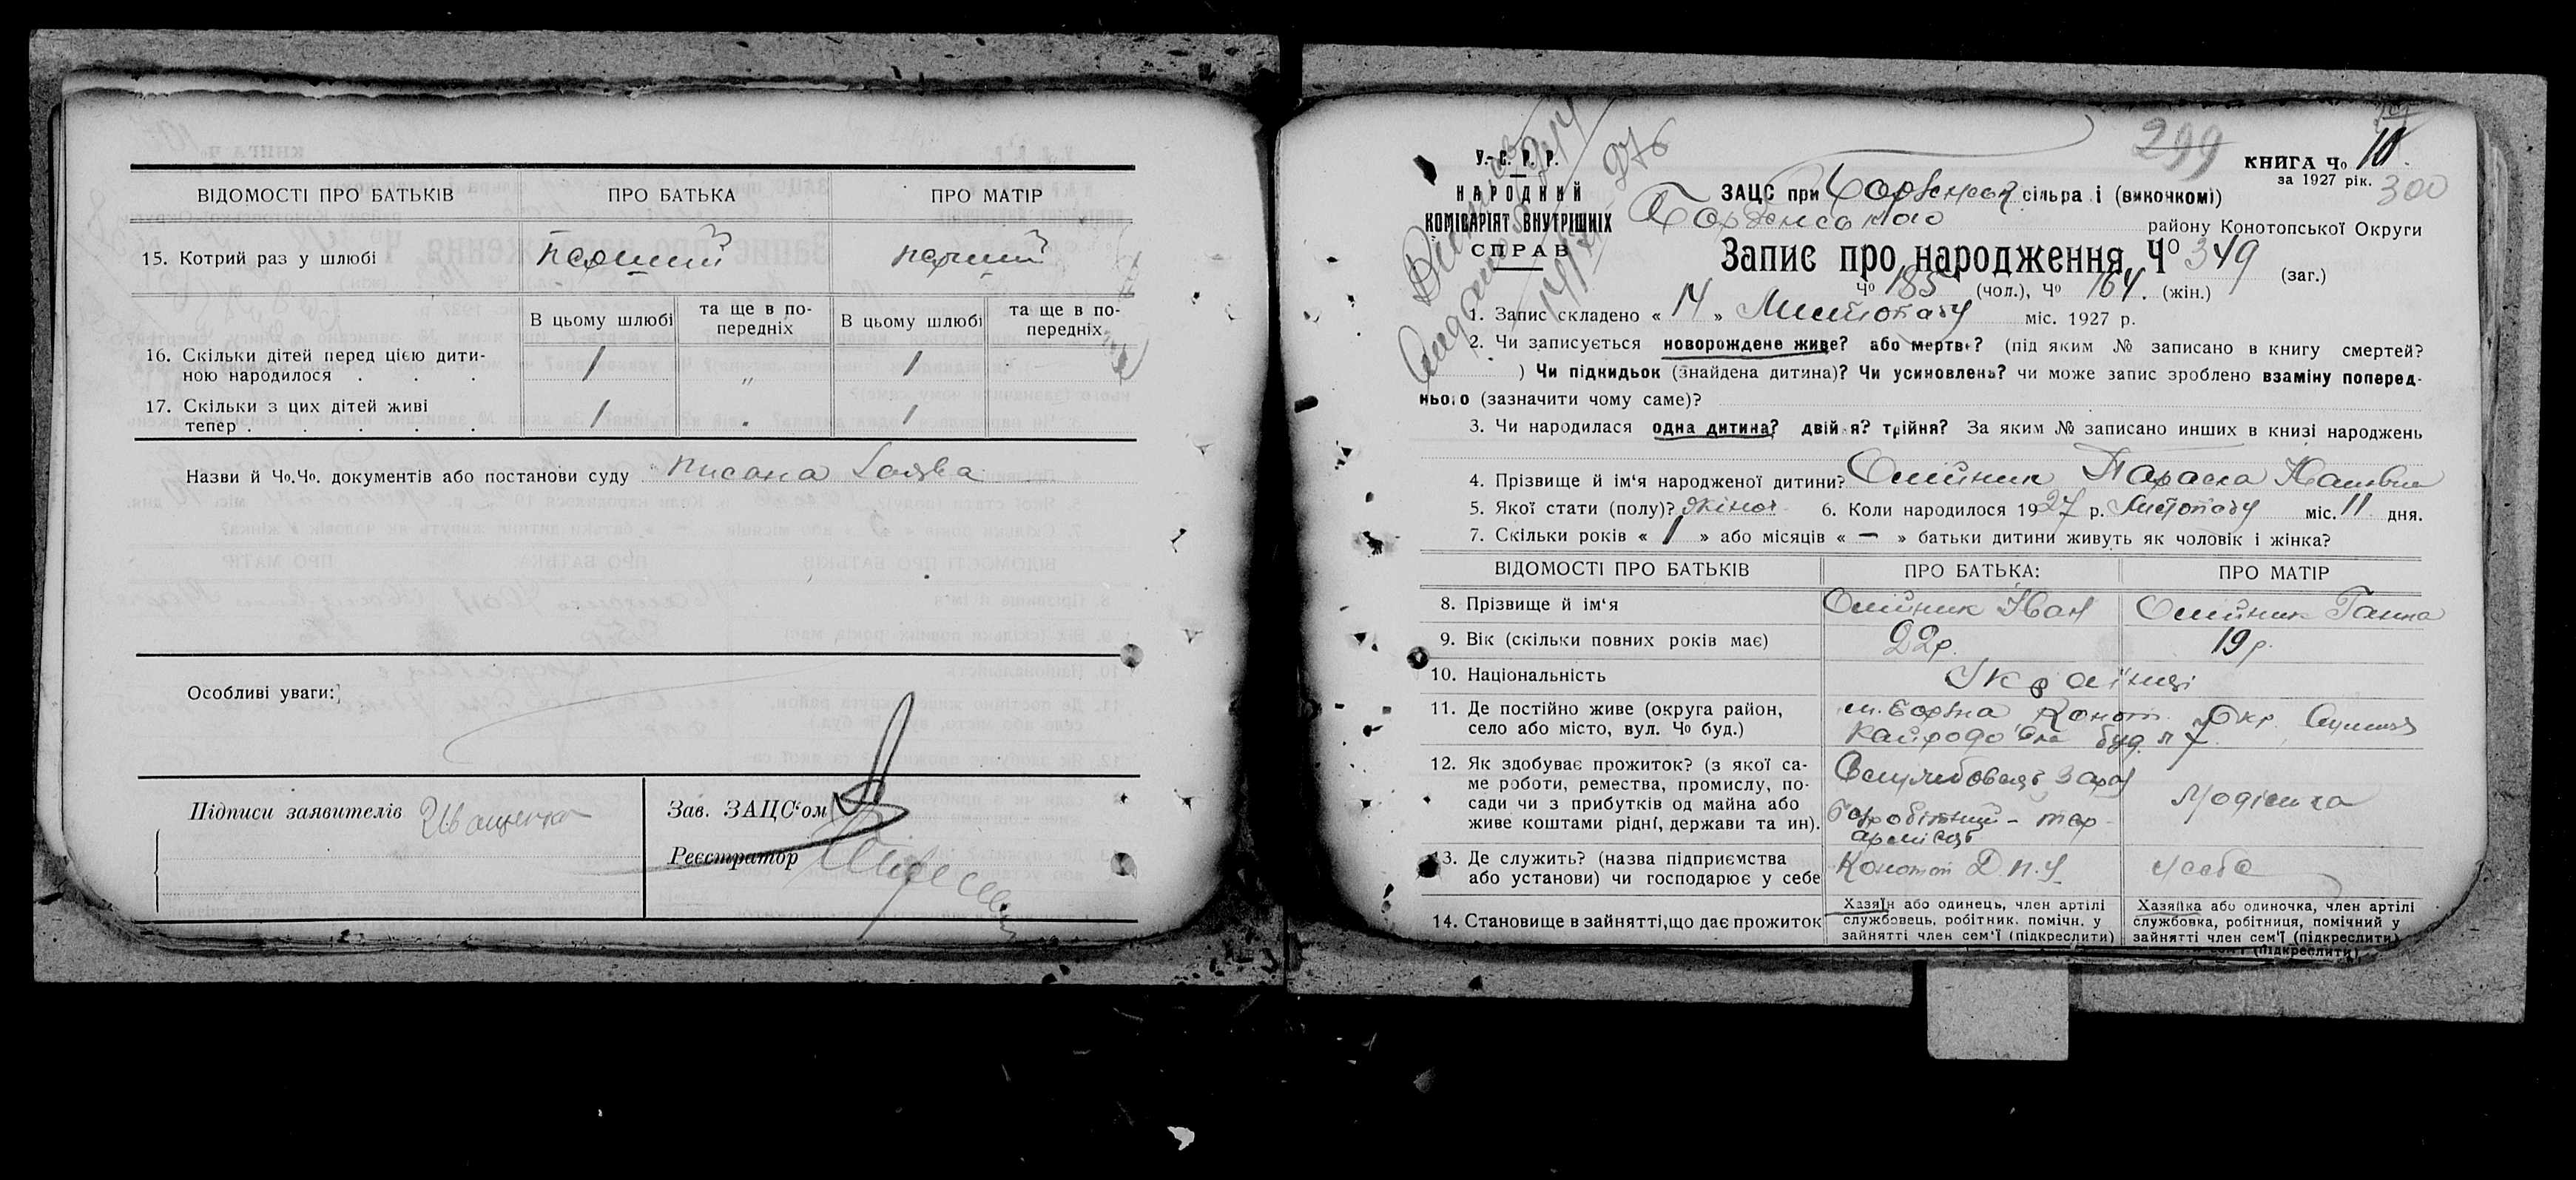 ВІДОМОСТІ ПРО БАТЬКІВ ПРО БАТЬКА ПРО МАТІР
15. Котрий раз у шлюбі перший перший
В цьому шлюбі та ще в по-передніх В цьому шлюбі та ще в по-передніх
16. Скільки дітей перед цією дити-
ною народилося . . . 1 „ 1
17. Скільки з цих дітей живі
тепер . . . . . 1 1
Назви й Чо.Чо. документів або постанови суду писана заява
Особливі уваги:
Підписи заявителів Иващенко
Зав. ЗАЦС'ом
Реєстратор
299
У.С.Р.Р.
НАРОДНИЙ
КОМІСАРІЯТ ВНУТРІШНІХ
СПРАВ
КНИГА Чо 10
за 1927 рік. 300
ЗАЦС при Борзенск сільра і (викочкомі)
Борзенського району Конотопської Округи
Запис про народження Чо 349 (заг.)
Чо 185 (чол.), Чо 164. (жін.)
1. Запис складено « 14 » Листопаду міс. 1927 р.
2. Чи записується новорождене живе? або мертве? (під яким № записано в книгу смертей?
) Чи підкидьок (знайдена дитина)? Чи усиновлень? чи може запис зроблено взаміну поперед-
нього (зазначити чому саме)?
3. Чи народилася одна дитина? двійня? трійня? За яким № записано инших в книзі народжень
4. Прізвище й ім'я народженої дитини? Олійник Параска Іванівна
5. Якої стати (полу)? жіноч. 6. Коли народилося 1927 р. Листопаду міс. 11 дня.
7. Скільки років « 1 » або місяців « — » батьки дитини живуть як чоловік і жінка?
ВІДОМОСТІ ПРО БАТЬКІВ ПРО БАТЬКА: ПРО МАТІР
8. Прізвище й ім'я Олійник Іван Олійник Ганна
9. Вік (скільки повних років має) 22р. 19р.
10. Національність Українці
11. Де постійно живе (округа район,
село або місто, вул. Чо буд.) м. Борзна Конот. Окр.
буд. п 7
12. Як здобуває прожиток? (з якої са-
ме роботи, ремества, промислу, по-
сади чи з прибутків од майна або
живе коштами рідні, держави та ин).
13. Де служить? (назва підприємства
або установи) чи господарює у себе Конотоп Д.П.У. У себе
14. Становище в зайнятті, що дає прожиток
Хазяїн або одинець, член артілі
службовець, робітник. помічн. у
зайнятті член сем'ї (підкреслити)
Хазяйка або одиночка, член артілі
службовка, робітниця, помічний у
зайнятті член сем'ї (підкреслити)